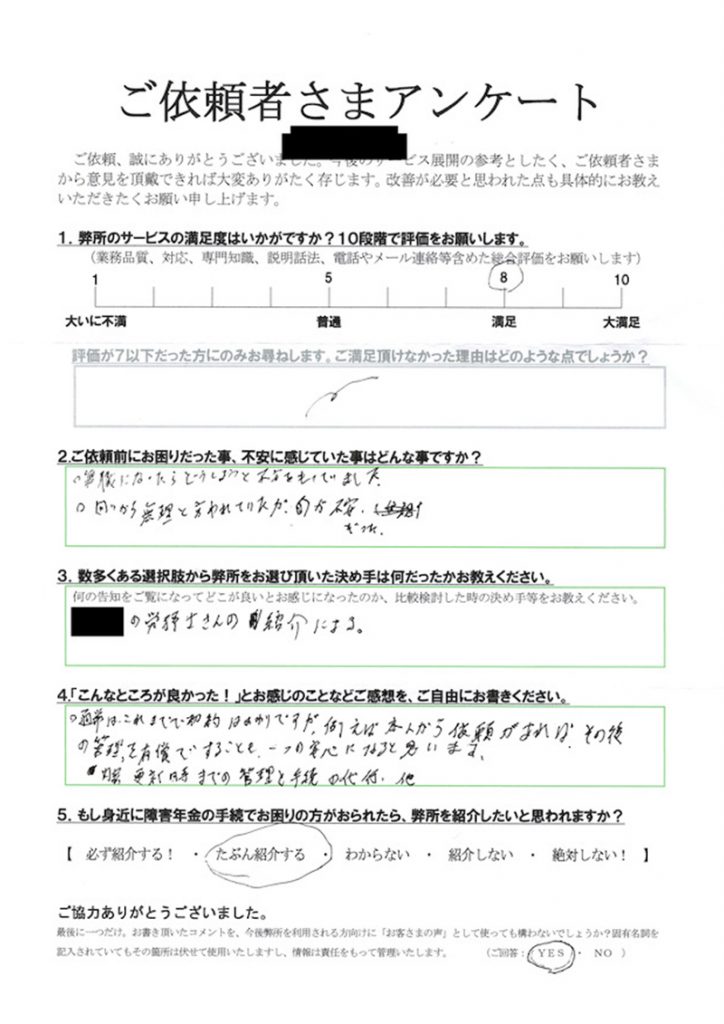 ご依頼者さまアンケート
ご依頼、誠にありがとうございました。今後のサービス展開の参考としたく、ご依頼者さま
から意見を頂戴できれば大変ありがたく存じます。改善が必要と思われた点も具体的にお教え
いただきたくお願い申し上げます。
1．弊所のサービスの満足度はいかがですか？10段階で評価をお願いします。
（業務品質、対応、専門知識、説明話法、電話やメール連絡等含めた総合評価をお願いします）
1 5 8 10
大いに不満 普通 満足 大満足
評価が7以下だった方にのみお尋ねします。ご満足頂けなかった理由はどのような点でしょうか？
2.ご依頼前にお困りだった事、不安に感じていた事はどんな事ですか？
になったらどうしようと不安をもっていました
から無理と言われていたが、
3．数多くある選択肢から弊所をお選び頂いた決め手は何だったかお教えください。
何の告知をご覧になってどこが良いとお感じになったのか、比較検討した時の決め手等をお教えください。
の労務士さんの紹介による。
4.「こんなところが良かった！」とお感じのことなどご感想を、ご自由にお書きください。
通常はこれまでで契約はおわりですが、例えば本人から依頼があれば、その後
の管理を有償ですることも、一つの安心になると思います。
更新時までの管理と手続の代行、他
5．もし身近に障害年金の手続でお困りの方がおられたら、弊所を紹介したいと思われますか？
【 必ず紹介する！ ・ たぶん紹介する ・ わからない ・ 紹介しない ・ 絶対しない！ 】
ご協力ありがとうございました。
最後に一つだけ。お書き頂いたコメントを、今後弊所を利用される方向けに「お客さまの声」として使っても構わないでしょうか？固有名詞を
記入されていてもその箇所は伏せて使用いたしますし、情報は責任をもって管理いたします。 （ご回答： YES ・ NO ）